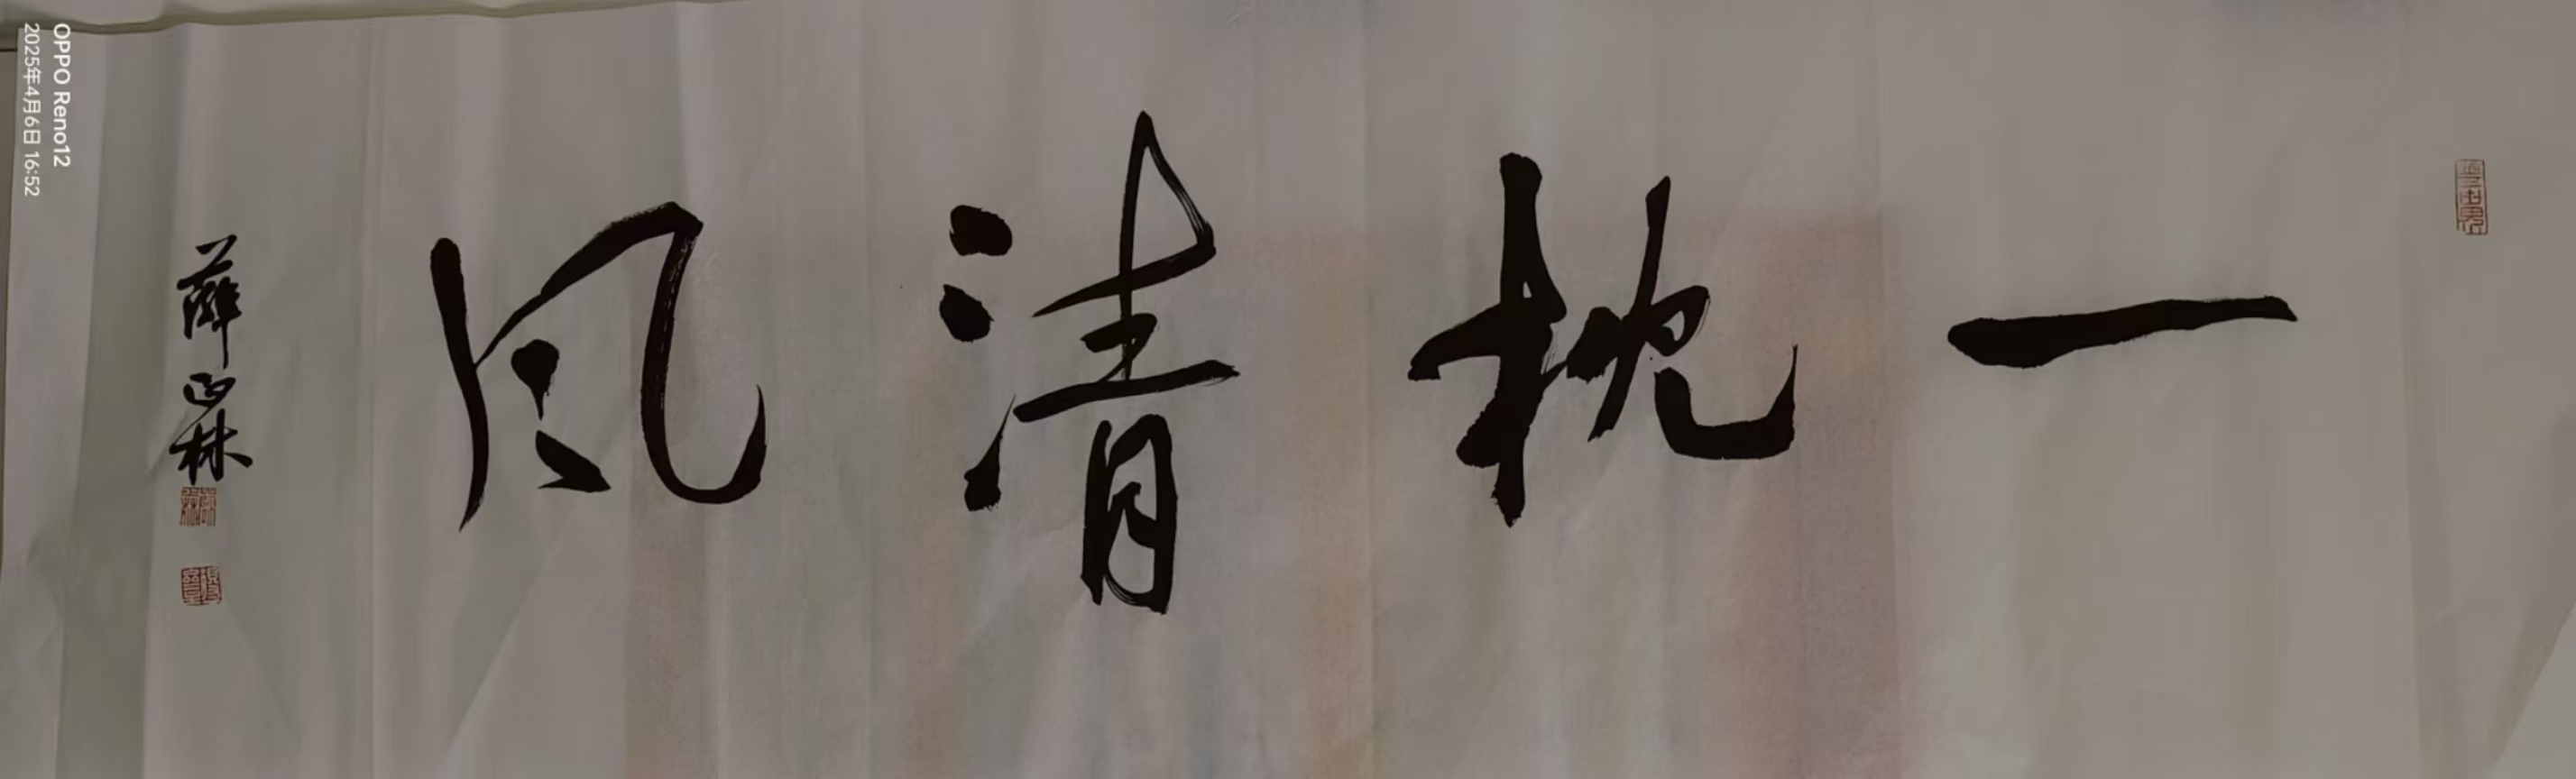 一枕清风
薛正林
OPPO Reno12
2025年4月6日 16:52